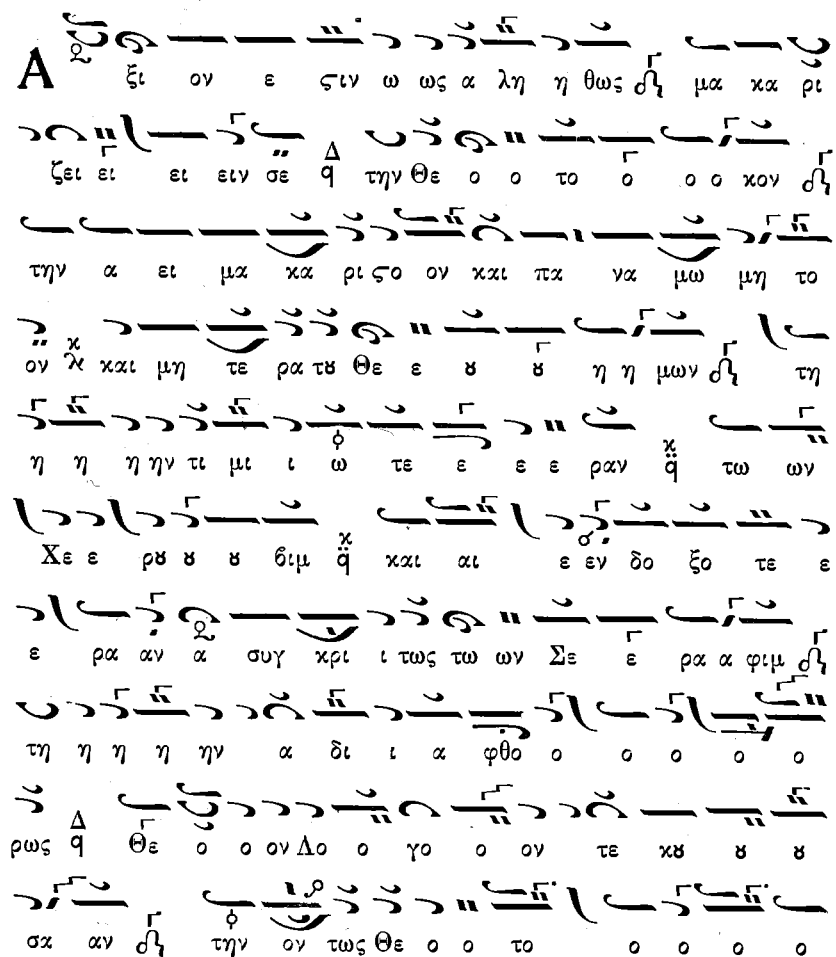 Α ξι ον ε ϛιν ω ως α λη η θως μα κα ρι
ζει ει ει ειν σε Δ q την Θε ο ο το ο ο ο κον
την α ει μα κα ρι ϛο ον και πα να μω μη το
ον κ λ και μη τε ρα τȣ Θε ε ȣ ȣ η η μων τη
η η η ην τι μι ι ω τε ε ε ε ραν κ q τω ων
Χε ε ρȣ ȣ ȣ βιμ κ q και αι ε εν δο ξο τε ε
ε ρα αν α συγ κρι ι τως τω ων Σε ε ρα α φιμ
τη η η η ην α δι ι α φθο ο ο ο ο ο
ρως Δ q Θε ο ο ον Λο ο γο ο ον τε κȣ ȣ ȣ
σα αν την ον τως Θε ο ο το ο ο ο ο